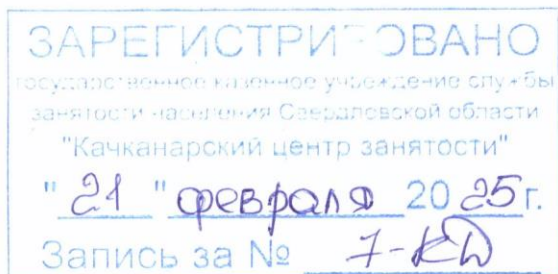 ЗАРЕГИСТРИРОВАНО
государственное казенное учреждение службы
занятости населения Свердловской области
"Качканарский центр занятости"
"21" февраля 2025г.
Запись за № 7-КД